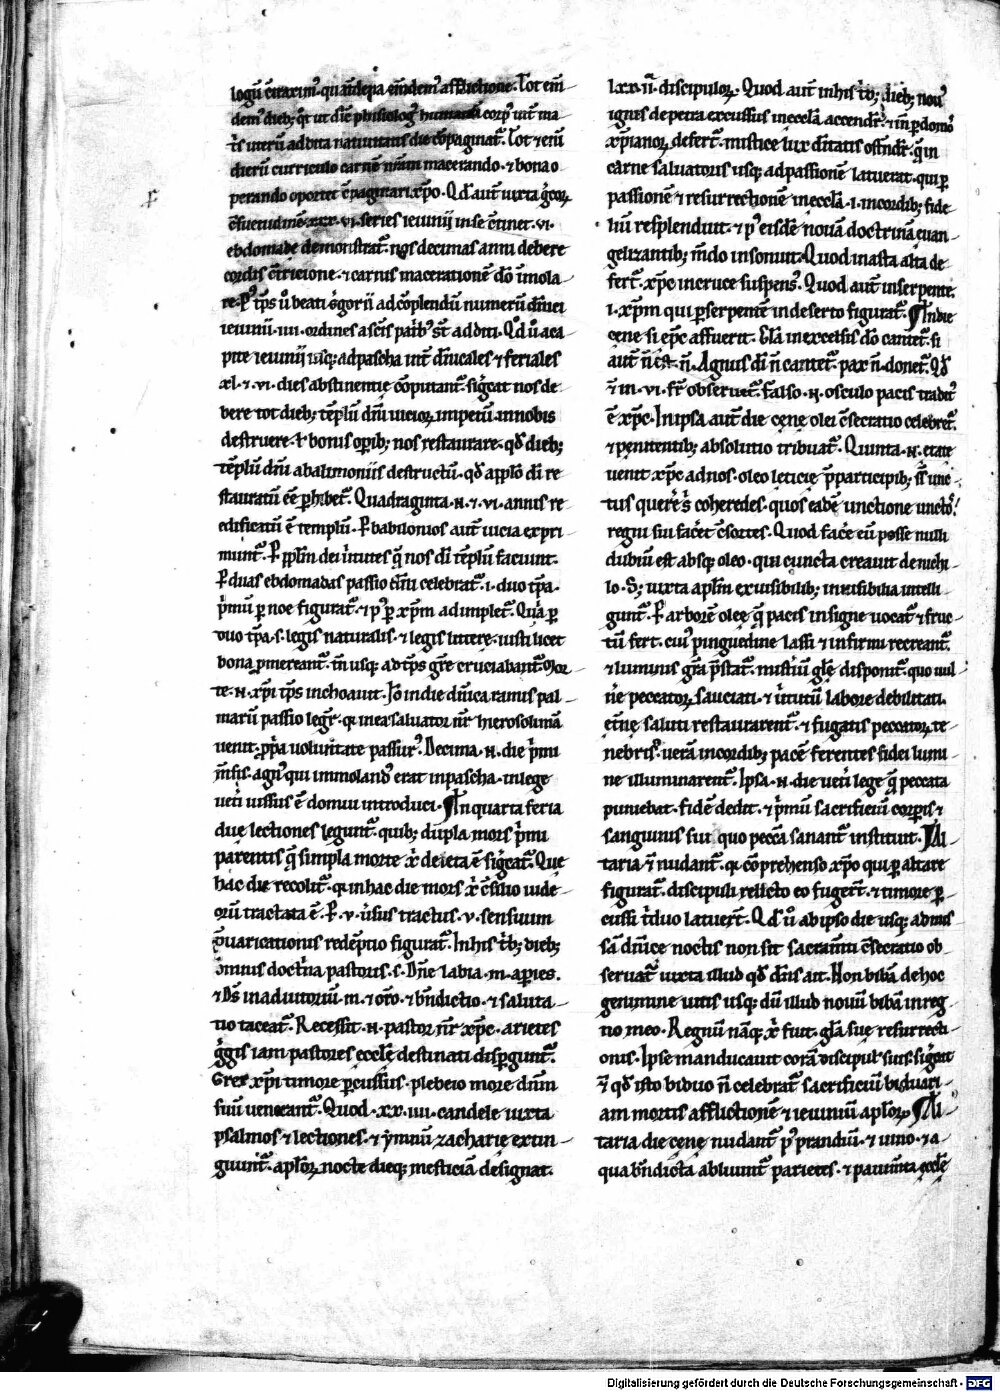 logũ c̃traxim᷒. quãdepa em̃dem᷒ afflictione. Tot em̃
dem᷒ dieb; qr̃ ut dic̃ phisiolog᷒ humanũ corp᷒ int̃ ma
tr̃is uterũ ad bta natiuitatis die cõpaginat᷒. Tot ⁊ enĩ
dierũ curriculo carnẽ nr̃am macerando. ⁊ bona o
perando oportet c̃paginari xp̃o. Qd̃ aut̃ iuxta g̃cor
c̃suetudinẽ xxx. vi. series ieiunii in se c̃tinet. vi.
ebdomade demonstrat᷒. nos decimas anni debere
cordis c̃tritione. ⁊ carnis maceratione dõ im̃ola
re. P᷒ tp̃s ũ beati g̃gorii ad cõplendũ numerũ dñici
ieiunii. iiii. ordines a sc̃is patrib᷒ st̃ additi. Qd̃ ũ a ca
pite ieiunii usq; ad pascha int̃ dñicales ⁊ feriales
xl. ⁊ vi. dies abstinentie cõputant᷒. sig̃cat nos de
bere tot dieb; tẽplũ dñi uicior̃ impetũ in nobis
destruere. ⁊ bonis op̃ib; nos restaurare. qd̃ dieb;
tẽplũ dñi ab alimoniis destructũ. qd̃ a pp̃lo dĩ re
stauratũ eẽ p̱hibet᷒. Quadraginta. n. ⁊ vi. annis re
edificatũ ẽ templũ. P̱ babilonios aut̃ uicia expri
munt᷒. P̱ pp̃lm dei ũtutes q̃ nos dĩ tẽplũ faciunt.
P̱ duas ebdomadas passio dñi celebrat᷒. i. duo tp̃a.
p̃mũ p̱ noe figurat᷒. ⁊ p᷒ p̱ xp̃m adimplet᷒. Quia p̱
duo tp̃a. s. legis naturalis. ⁊ legis littere. iusti licet
bona p̱mereant᷒. tñ usq; ad tp̃s gr̃e cruciabant᷒. Mor
te. n. xp̃i tp̃s inchoauit. Iõ in die dñica ramis pal
marũ passio legit᷒. q̃ in ea saluator nr̃ hierosolimã
uenit. p̱p̃a uoluntate passur᷒. Decima. n. die p̃mi
m̃sis. agn᷒ qui immoland᷒ erat in pascha. in lege
uet̃i iussus ẽ domui introduci. In quarta feria
due lectiones legunt᷒. quib; dupla mors p̃mi
parentis q̃ simpla morte x̃ deleta ẽ sig̃cat᷒. Que
hac die recolit᷒. q̃ in hac die mors x̃ c̃silio iude
orũ tractata ẽ. P̱. v. ũsus tractus. v. sensuum
p̃uaricationis redẽptio figurat᷒. In his t̃b; dieb;
omnis doctr̃na pastoris. s. Dñe labia. m. ap̱ies.
⁊ Ds̃ in adiutoriũ. m. ⁊ or̃o. ⁊ bñdictio. ⁊ saluta
tio taceat᷒. Recessit. n. pastor nr̃ xp̃c. arietes
g̃gis iam pastores eccl̃e destinati disp̱gunt᷒.
Grex xp̃i timore p̱cussus. plebeio more dñm
suũ uenerant᷒. Quod. xx. iiii. candele iuxta
psalmos ⁊ lectiones. ⁊ ymnũ zacharie extin
guunt᷒. apl̃or̃ nocte dieq; mesticiã designat.
lxx. ii. discipulor̃. Quod aut̃ in his t̃b; dieb; nou᷒
ignis de petra excussus in eccl̃a accendit᷒. ⁊ in p̱domo᷒
xp̃ianor̃ defert᷒. mistice lux d̃itatis ostẽdit᷒. q̃ in
carne saluatoris usq; ad passionẽ latuerat. qui p̱
passionẽ ⁊ resurrectionẽ in eccl̃a. i. in cordib; fide
liũ resplenduit. ⁊ p᷒ eisdẽ nouã doctrinã euan
gelizantib; mũdo insonuit. Quod in asta alta de
fert᷒. xp̃c in cruce suspens᷒. Quod aut̃ in serpente.
i. xp̃m qui p̱ serpentẽ in deserto figurat᷒. In die
cene si ep̃c affuerit. Gl̃a in excelsis dõ cantet᷒. si
aut̃ ñ ẽ. ñ. Agnus dĩ ñ cantet᷒. pax ñ. donet᷒. Qd̃
⁊ in. vi. fr̃ obseruet᷒. Falso. n. osculo pacis tradit᷒
ẽ xp̃c. In ipsa aut̃ die cene olei c̃secratio celebret᷒.
⁊ penitentib; absolutio tribuat᷒. Quinta. n. etate
uenit xp̃c ad nos. oleo leticie p̱participib; suis unc
tus quer̃e s̃ coheredes. quos eadẽ unctione uncto᷒
regni sui facẽt c̃sortes. Quod fac̃e eũ posse nulli
dubiũ est absq; oleo. qui cuncta creauit de nichi
lo. S; iuxta apl̃m ex uisibilib; inuisibilia intelli
gunt᷒. P̱ arborẽ olee q̃ pacis insigne uocat᷒ ⁊ fruc
tũ fert. cui᷒ pinguedine lassi ⁊ infirmi recreant᷒.
⁊ luminis gr̃a p̃stat᷒. mist̃iũ gl̃e disponit᷒. quo uul
ñe peccator̃ sauciati. ⁊ ũtutũ labore debilitati.
et̃ne saluti restaurarent᷒. ⁊ fugatis peccator̃ te
nebris. uerã in cordib; pacẽ ferentes fidei lumi
ne illuminarent᷒. Ipsa. n. die uet̃i lege q̃ peccata
puniebat. fidẽ dedit. ⁊ p̃mũ sacrificiũ corp̱is ⁊
sanguinis sui quo pecc̃a sanant᷒ instituit. Al
taria ⁊ nudant᷒. q̃ cõprehenso xp̃o qui p̱ altare
figurat᷒. discipuli relicto eo fuger̃t. ⁊ timore p̱
cussi t̃duo latuer̃t. Qd̃ ũ ab ipso die usq; ad mis
sã dñice noctis non fit sacram̃ti c̃secratio ob
seruat᷒ iuxta illud qd̃ dñs ait. Non bibã de hoc
genimine uitis usq; dũ illud nouũ bibã in reg
no meo. Regnũ nãq; x̃ fuit. gl̃a sue resurrecti
onis. Ipse manducauit corã discipul᷒ suis. sig̃cat
⁊ qd̃ isto biduo ñ celebrat᷒ sacrificiũ biduari
am mortis afflictionẽ ⁊ ieiuniũ apl̃or̃. Al
taria die cene nudant᷒ p᷒ prandiũ. ⁊ uino. ⁊ a
qua bñdicta abluunt᷒ parietes. ⁊ pauim̃ta eccl̃e
Digitalisierung gefördert durch die Deutsche Forschungsgemeinschaft - DFG